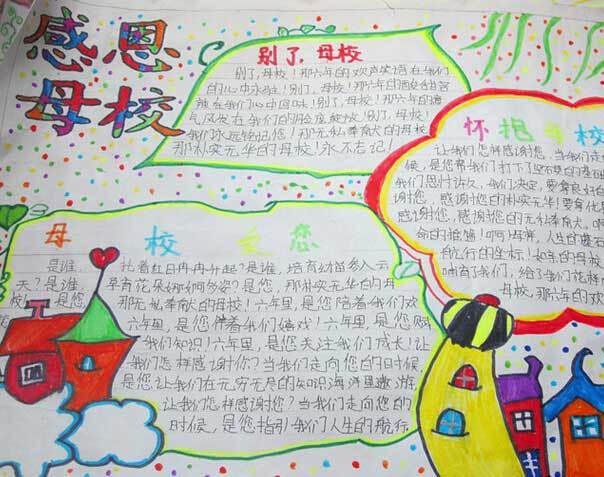 感恩
母校
别了，母校
别了，母校！那六年的欢声笑语在我们
的心中永驻！别了，母校！那六年的
在我们心中回味！别了，母校！那六年的
气风发在我们的脸庞绽放！别了，母校！
我们永远铭记您！那无私奉献的母校
那朴实无华的母校！永不忘记！
怀抱母校
让我们怎样感谢您，当我们走
候，是您帮我们打下了坚不摧的基
我们思付许久，我们决定，要拿良好
谢您，感谢您的朴实无华！要拿
感谢您，感谢您的无私奉育大。啊
命的摇篮！啊！母庠，人生的基
航行的坐标！如的母校
哺育我们，给了我们花样
校，那六年的欢
母校之恩
是谁， 托着红日冉冉升起？是谁，培育幼苗参入云
天？是谁， 草育花朵婀娜多姿？是您，那朴实无华的母
校！ 是您 那无私奉献的母校！六年里，是您陪着我们欢
六年里，是您伴着我们嬉戏！六年里，是您赐
我们知识！六年里，是您关注我们成长！让
我们怎样感谢你？当我们走向您的时候，
是您让我们在无穷无尽的知识海洋里遨游，
让我们怎样感谢您？当我们走向您的
时候，是您指引我们人生的航行